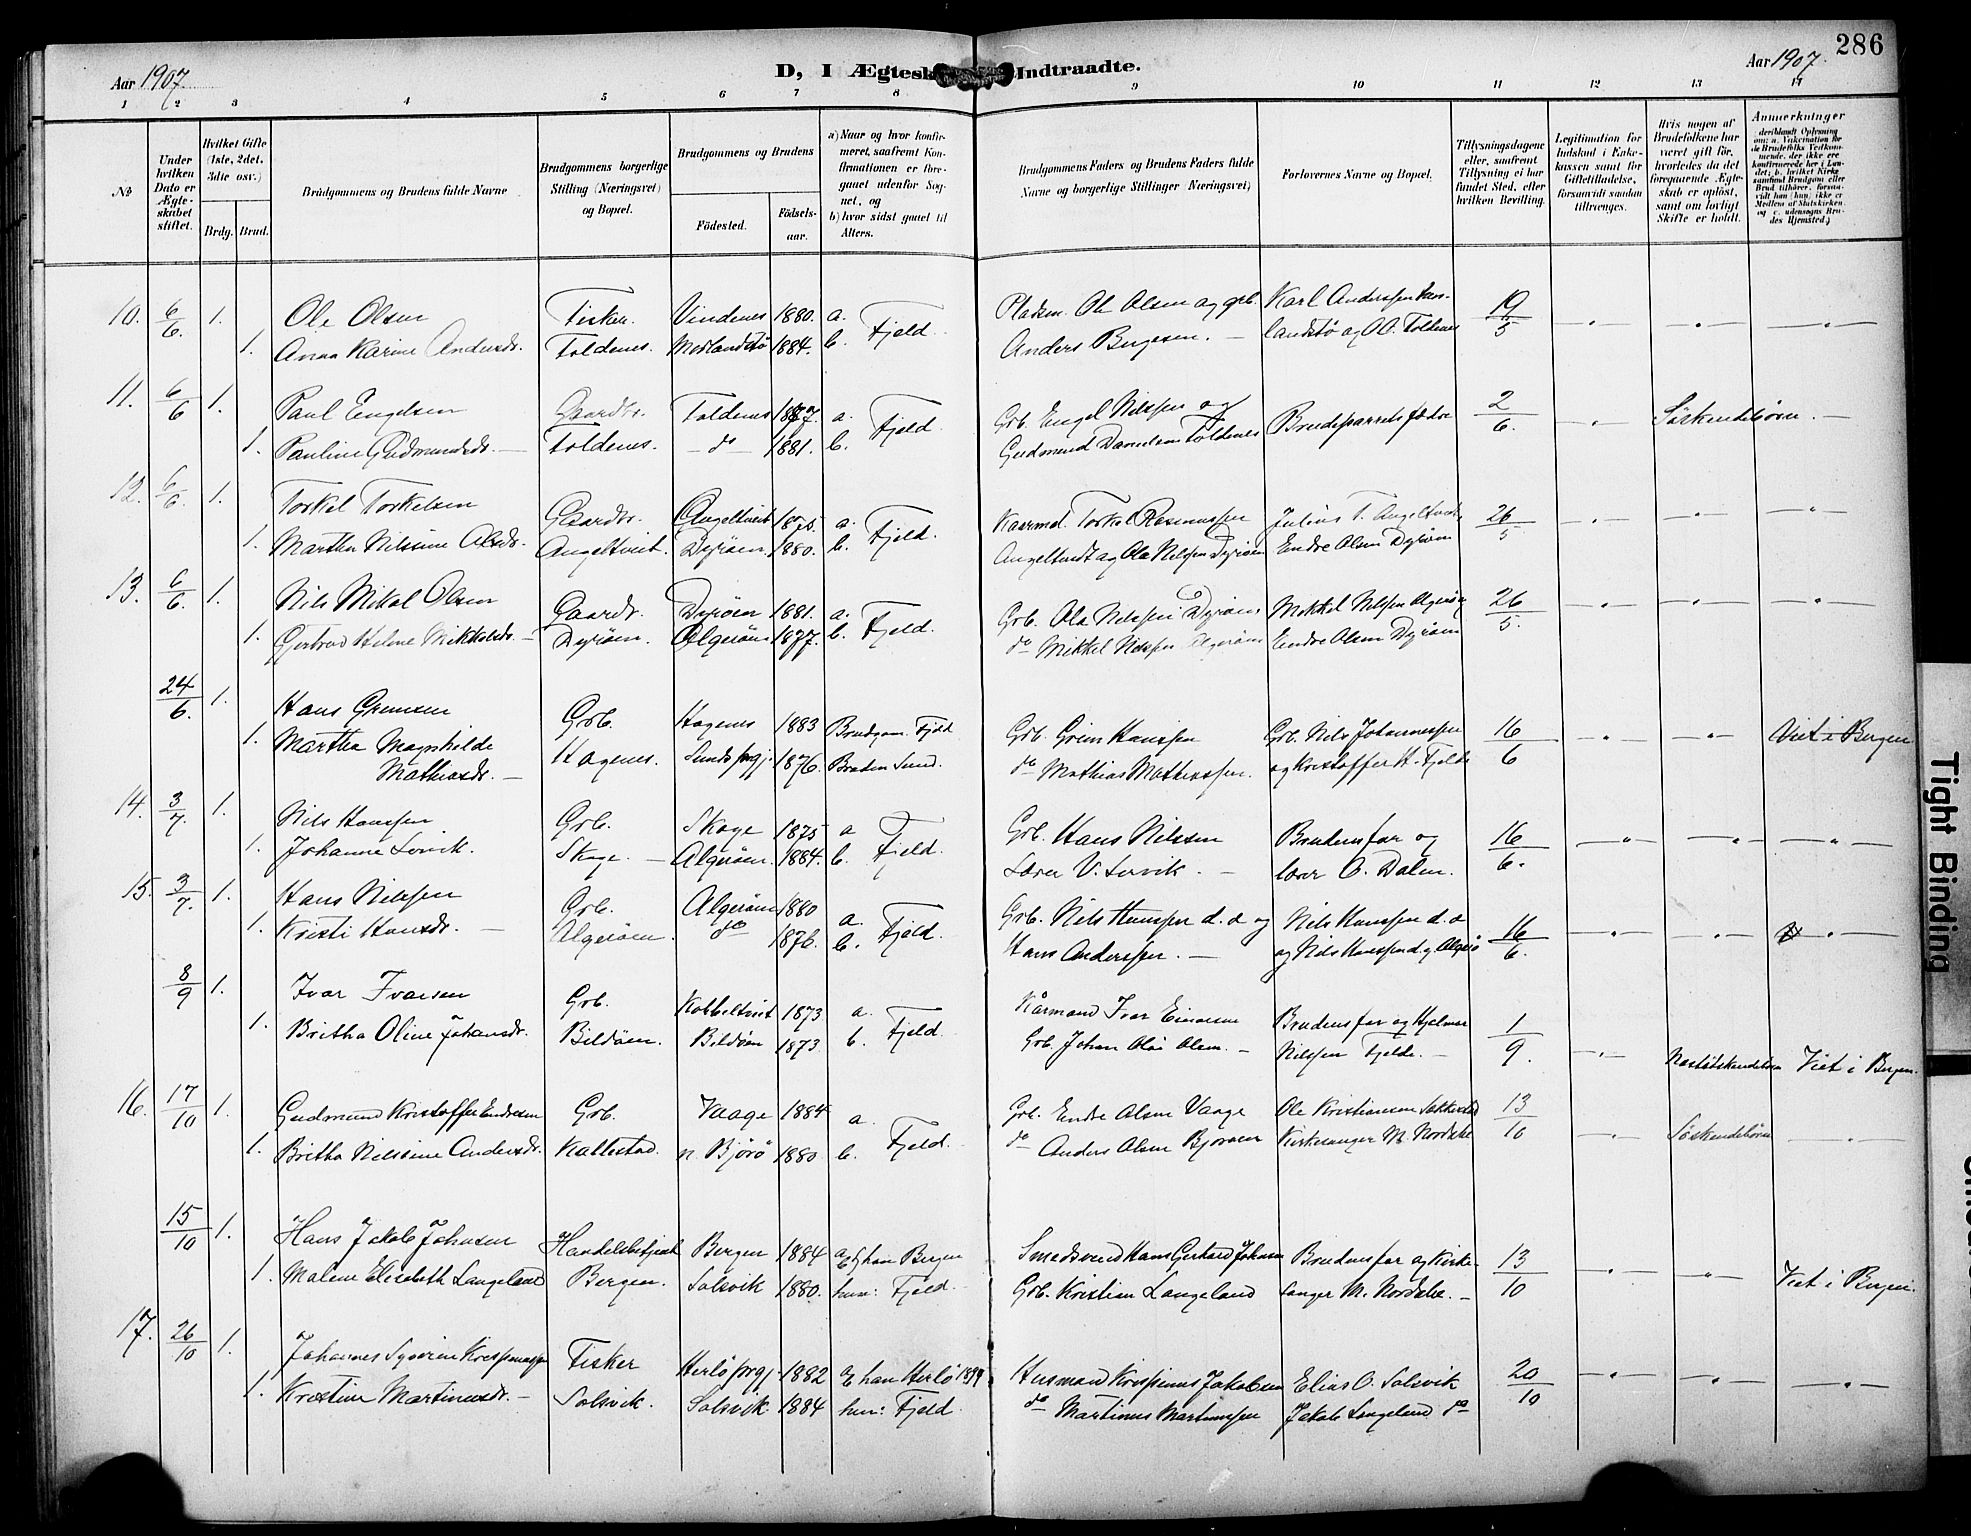 286
Aar 1907.
D, I Ægtesk Indtraadte.
Aar 1907.
1 2 3 4 5 6 7 8 9 10 11 12 13 14
No
Under hvilken Dato er Ægteskabet stiftet.
Hvilket Gifte (1ste, 2det, 3die osv.)
Brdg. Brud.
Brudgommens og Brudens fulde Navne
Brudgommens borgerlige Stilling (Næringsvei) og Bopæl.
Brudgommens og Brudens
Födested.
Födselsaar.
a) Naar og hvor konfirmeret, saafremt Konfirmationen er foregaaet udenfor Sognet, og
b) hvor sidst gaaet til Alters.
Brudgommens Faders og Brudens Faders fulde Navne og borgerlige Stillinger Næringsvei)
Forlovernes Navne og Bopæl.
Tillysningsdagene eller, saafremt Tillysning ei har fundet Sted, efter hvilken Bevilling.
Legitimation for Indskud i Enkekassen samt for Giftetilladelse, forsaavidt saadan tiltrænges.
Hvis nogen af Brudefolkene har været gift för, hvorledes da det foregaaende Ægteskab er oplöst, samt om lovligt Skifte er holdt.
Anmerkninger
10. 6/6. 1. Ole Olsen Fisker. Vindenes 1880. a. Fjeld Pladsm. Ole Olsen og grb. Karl Anderssen 19/5 - " - - " - - " -
1. Anna Karine Andersdr. Toldenes. Morlandstø 1884. b. Anders Bergesen. - landstø og O. O. Toldenes
11. 6/6 1. Paul Engelsen Gaardbr. Toldenes 1877. a. Fjeld. Grb. Engel Nilssen og Brudeparrets fædre 2/6. - " - Söskendebörn. -
1. Pauline Gudmundsdr. - Toldenes. - do - 1881. b. Gudmund Danielsen Toldenes
12. 6/6 1. Torkel Torkelsen Gaardbr. Angeltveit 1875. a. Fjeld. Kaarmd. Torkel Rasmussen Julius T. Angeltveit 26/5 - " - - " - - " -
1. Martha Nilsine Olsdr. Angeltveit. Dyröen 1880. b. Angeltveit og Ola Nilssen Dyröen Endre Olsen Dyröen
13. 6/6. 1. Nils Mikal Olsen Gaardb. Dyröen 1881. a. Fjeld. Grb. Ola Nilssen Dyröen Mikkel Nilssen Algerö og 26/5. - " - - " - - " -
1. Gjertrud Helene Mikkelsdr. - Dyröen. Algeröen 1877. b. do Mikkel Nilssen Algeröen Endre Olsen Dyröen
24/6. 1. Hans Grimsen Grb. Hagenes 1883 Brudgom. Fjeld Grb. Grim Hanssen Grb. Nils Johannessen 16/6 - " - - " - Viet i Bergen
1. Martha Magnhilde Mathiasdr. - Hagenes. Sunds prgj. 1876. Bruden Sund. do Mathias Mathiassen. og Kristoffer H. Fjelde
14. 3/7. 1. Nils Hanssen Grb. Skoge 1875 a Fjeld. Grb. Hans Nilssen Brudens far og 16/6. - " - - " - - " -
1. Johanne Lervik. Skoge. - Algeröen. 1884. b. Lærer V. Lervik. - lærer O. Dalen.
15. 3/7. 1. Hans Nilssen Grb. Algeröen 1880 a. Fjeld. Grb. Nils Hanssen d. e og Nils Hanssen d. e 16/6. - " - - " - - " -
1. Kristi Hansdr. - Algeröen. do 1876. b. Hans Anderssen. - og Nils Hanssen d. y Algerö
8/9 1. Ivar Ivarsen Grb. Kobbeltvet 1873 a. Fjeld. Kårmand Ivar Einarsen Brudens far og Hjelmer 1/9. - " - Næstsöskendebörn Viet i Bergen.
1. Britha Oline Johansdr. Bildöen. Bildöen 1873. b. Grb. Johan Olai Olsen. - Nilssen Fjelde. -
16. 17/10 1. Gudmund Kristoffer Endresen Grb. Vaage 1884 a. Fjeld. Grb. Endre Olsen Vaage Ole Kristiansen 13/10 - " - Söskendebörn - " -
1. Britha Nilsine Andersdr. Kallestad. n. Bjørö 1880 b. do Anders Olsen Björöen Kirkesanger M. Nordvke
15/10 1. Hans Jakob Johnsen Handelsbetjent Bergen 1884 a Ejhan Bergen Smedsvend Hans Gerhard Johnsen Brudens far og Kirke- 13/10 - " - - " - Viet i Bergen.
1. Malene Elisabeth Langeland Bergen. Solsvik 1880. hun: Fjeld. Grb. Kristian Langeland sanger M. Nordvke. -
17. 26/10 1. Johannes Severin Krispinussen Fisker Herlö prgj. 1882 a Ej han Herlö 1899 Husmand Krispinus Jakobsen Elias O. Solsvik 20/10 - " - - " - - " -
1. Kristine Martinusdr. - Solsvik. Solsvik 1884 hun: Fjeld. do Martinus Martinussen Jakob Langeland do
Tight Binding